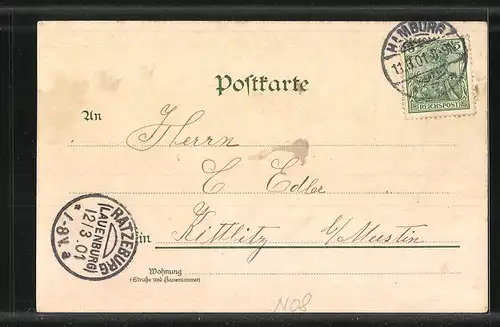 HAMBURG
11.3.01
5
REICHSPOST
Postkarte
An
Herrn
C Edler
in Kittlitz b/Mustin
RATZEBURG
(LAUENBURG)
12.3.01
*7-8V.a
Wohnung
(Straße und Hausnummer)
N08